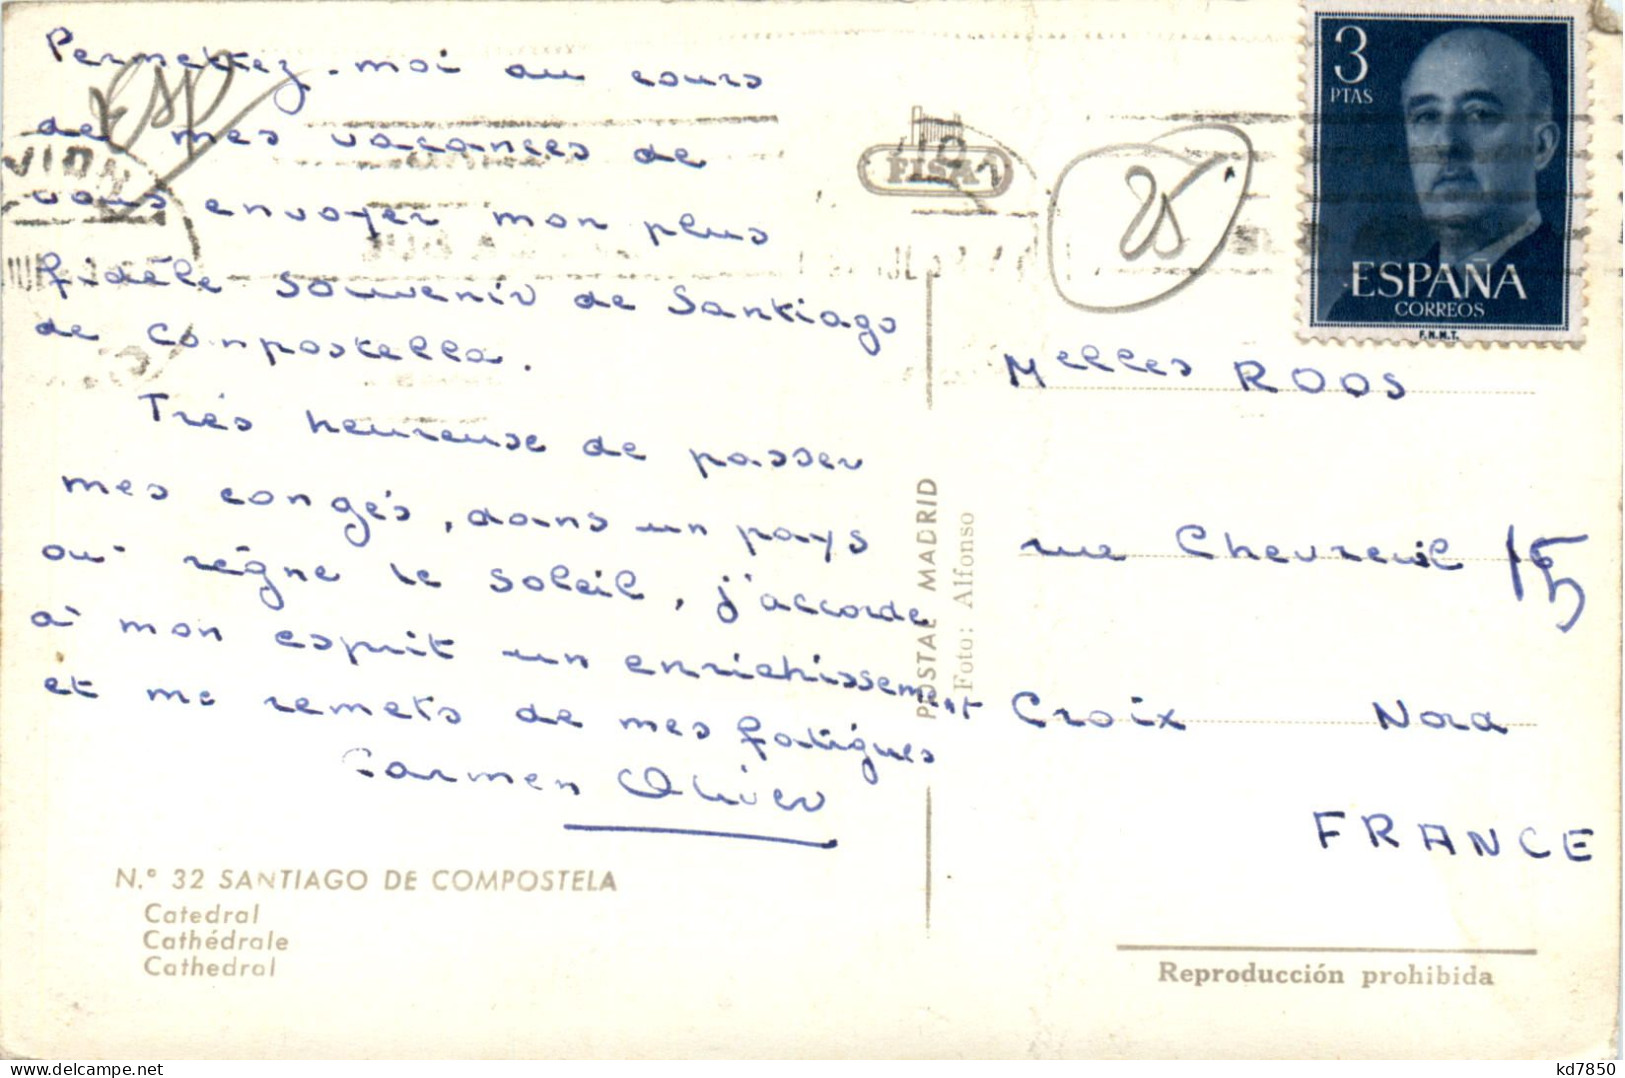 Permettez-moi au cours
de mes vacances de
vous envoyer mon plus
fidèle souvenir de Santiago
de Conpostella.
Très heureuse de passer
mes congés, dans un pays
où règne le soleil, j'accorde
à mon esprit un enrichissement
et me remets de mes fatigues
Carmen Olivier
N.º 32 SANTIAGO DE COMPOSTELA
Catedral
Cathédrale
Cathedral
Esp
FISA
25
POSTAL MADRID
Foto: Alfonso
3
PTAS
ESPAÑA
CORREOS
F.N.M.T.
Melles ROOS
rue Chevreuil 15
Croix Nord
FRANCE
Reproducción prohibida
kd7850